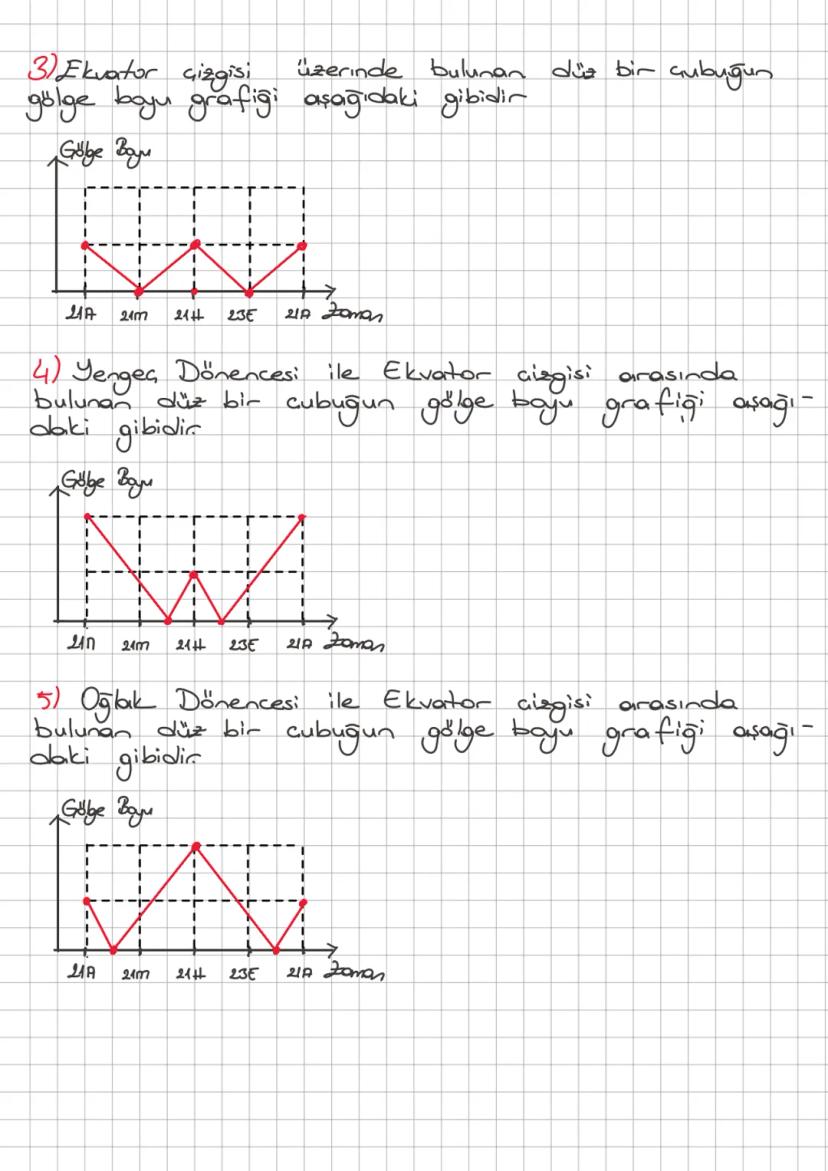 3) Ekvator çizgisi üzerinde bulunan düz bir çubuğun
gölge boyu grafiği aşağıdaki gibidir
Gölge Boyu
21A 21m 21H 23E 21A Zaman
4) Yengeç Dönencesi ile Ekvator çizgisi arasında
bulunan düz bir çubuğun gölge boyu grafiği aşağı-
daki gibidir.
Gölge Boyu
21A 21m 21H 23E 21A Zaman
5) Oğlak Dönencesi ile Ekvator çizgisi arasında
bulunan düz bir çubuğun gölge boyu grafiği aşağı-
daki gibidir
Gölge Boyu
21A 21m 21H 23E 21A Zaman